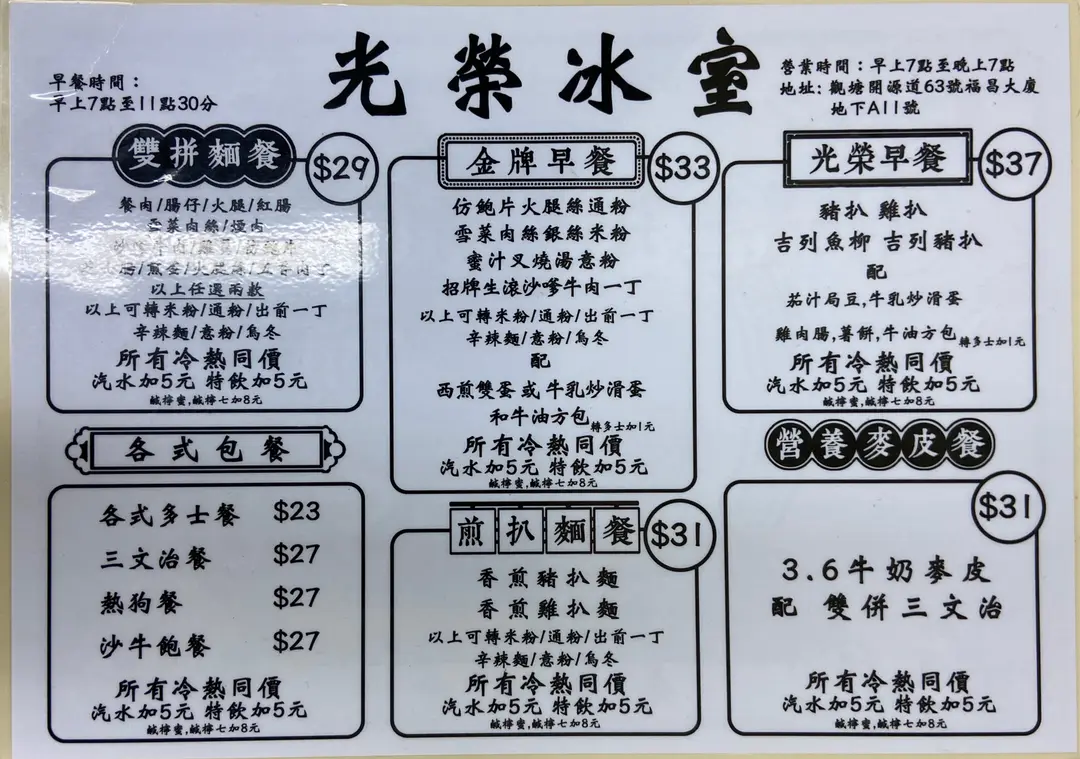 光榮冰室
早餐時間：
早上7點至11點30分
營業時間：早上7點至晚上7點
地址: 觀塘開源道63號福昌大廈
地下A11號
雙拼麵餐
$29
餐肉/腸仔/火腿/紅腸
雪菜肉絲/煙肉
以上任選兩款
以上可轉米粉/通粉/出前一丁
辛辣麵/意粉/烏冬
所有冷熱同價
汽水加5元 特飲加5元
鹹檸蜜,鹹檸七加8元
各式包餐
各式多士餐 $23
三文治餐 $27
熱狗餐 $27
沙牛飽餐 $27
所有冷熱同價
汽水加5元 特飲加5元
鹹檸蜜,鹹檸七加8元
金牌早餐
$33
仿鮑片火腿絲通粉
雪菜肉絲銀絲米粉
蜜汁叉燒湯意粉
招牌生滾沙嗲牛肉一丁
以上可轉米粉/通粉/出前一丁
辛辣麵/意粉/烏冬
配
西煎雙蛋 或 牛乳炒滑蛋
和牛油方包轉多士加1元
所有冷熱同價
汽水加5元 特飲加5元
鹹檸蜜,鹹檸七加8元
煎扒麵餐
$31
香煎豬扒麵
香煎雞扒麵
以上可轉米粉/通粉/出前一丁
辛辣麵/意粉/烏冬
所有冷熱同價
汽水加5元 特飲加5元
鹹檸蜜,鹹檸七加8元
光榮早餐
$37
豬扒 雞扒
吉列魚柳 吉列豬扒
配
茄汁局豆,牛乳炒滑蛋
雞肉腸,薯餅,牛油方包轉多士加1元
所有冷熱同價
汽水加5元 特飲加5元
鹹檸蜜,鹹檸七加8元
營養麥皮餐
$31
3.6牛奶麥皮
配 雙併三文治
所有冷熱同價
汽水加5元 特飲加5元
鹹檸蜜,鹹檸七加8元